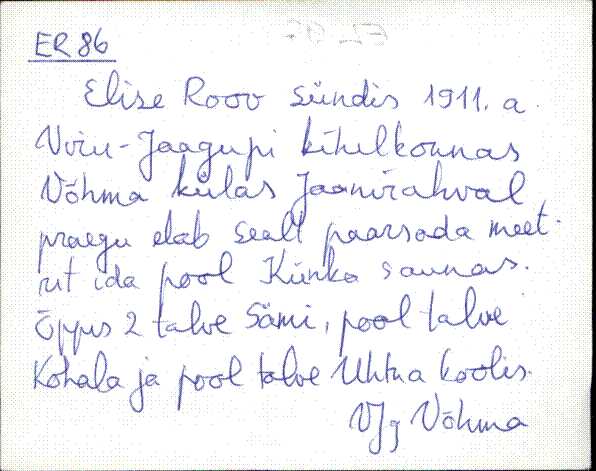 ER 86
Elise Roov sündis 1911. a.
Viru-Jaagupi kihelkonnas
Võhma külas Jaanirahval
praegu elab sealt paarsada meet-
rit ida pool Künka saunas.
Õppis 2 talve Sämi, pool talve
Kohala ja pool talve Uhtna koolis.
VJg Võhma